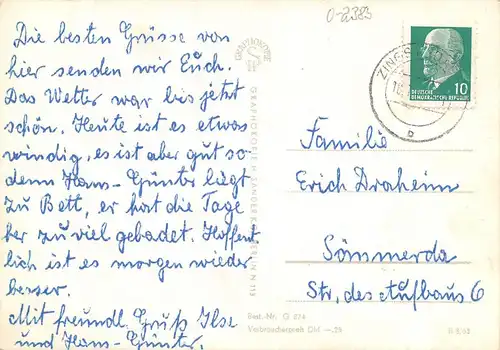 Die besten Grüsse von
hier senden wir Euch.
Das Wetter war bis jetzt
schön. Heute ist es etwas
windig, es ist aber gut so
denn Hans-Günter liegt
zu Bett, er hat die Tage
her zu viel gebadet. Hoffent
lich ist es morgen wieder
besser.
Mit freundl. Gruß Ilse
und Hans-Günter.
0-2383
ZINGST
10
DEUTSCHE
DEMOKRATISCHE REPUBLIK
b
Familie
Erich Draheim
Sömmerda
Str. des Aufbaus 6
Best.-Nr. G 834
Verbraucherpreis DM —,25